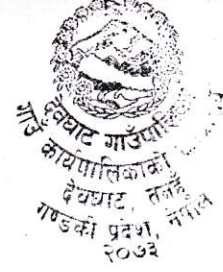 देवघाट गाउँपालिका
गाउँ कार्यपालिकाको
देवघाट, तनहुँ
गण्डकी प्रदेश, नेपाल
२०७३